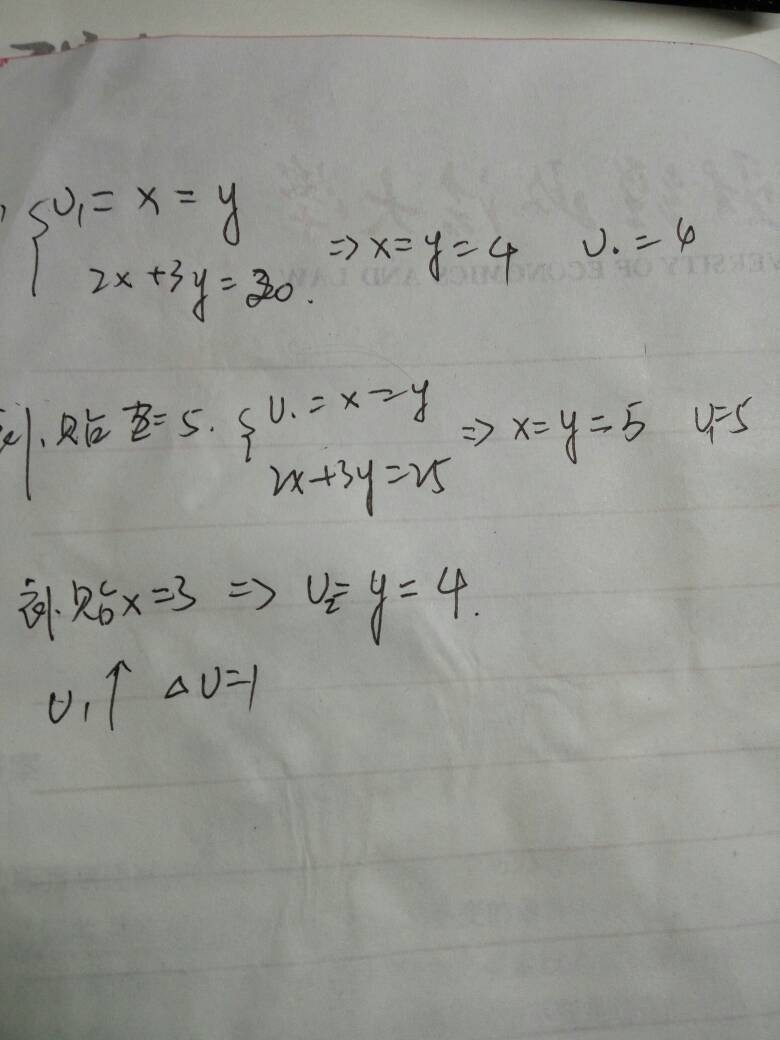 U₁ = x = y
2x + 3y = 20. ⇒ x = y = 4 U₁ = 4
补贴 = 5. { U₁ = x = y
2x + 3y = 25 ⇒ x = y = 5 U₁ = 5
补贴 x = 3 ⇒ U₂ = y = 4.
U₁ ↑ ΔU = 1
VERSITY OF ECONOMICS AND LAW